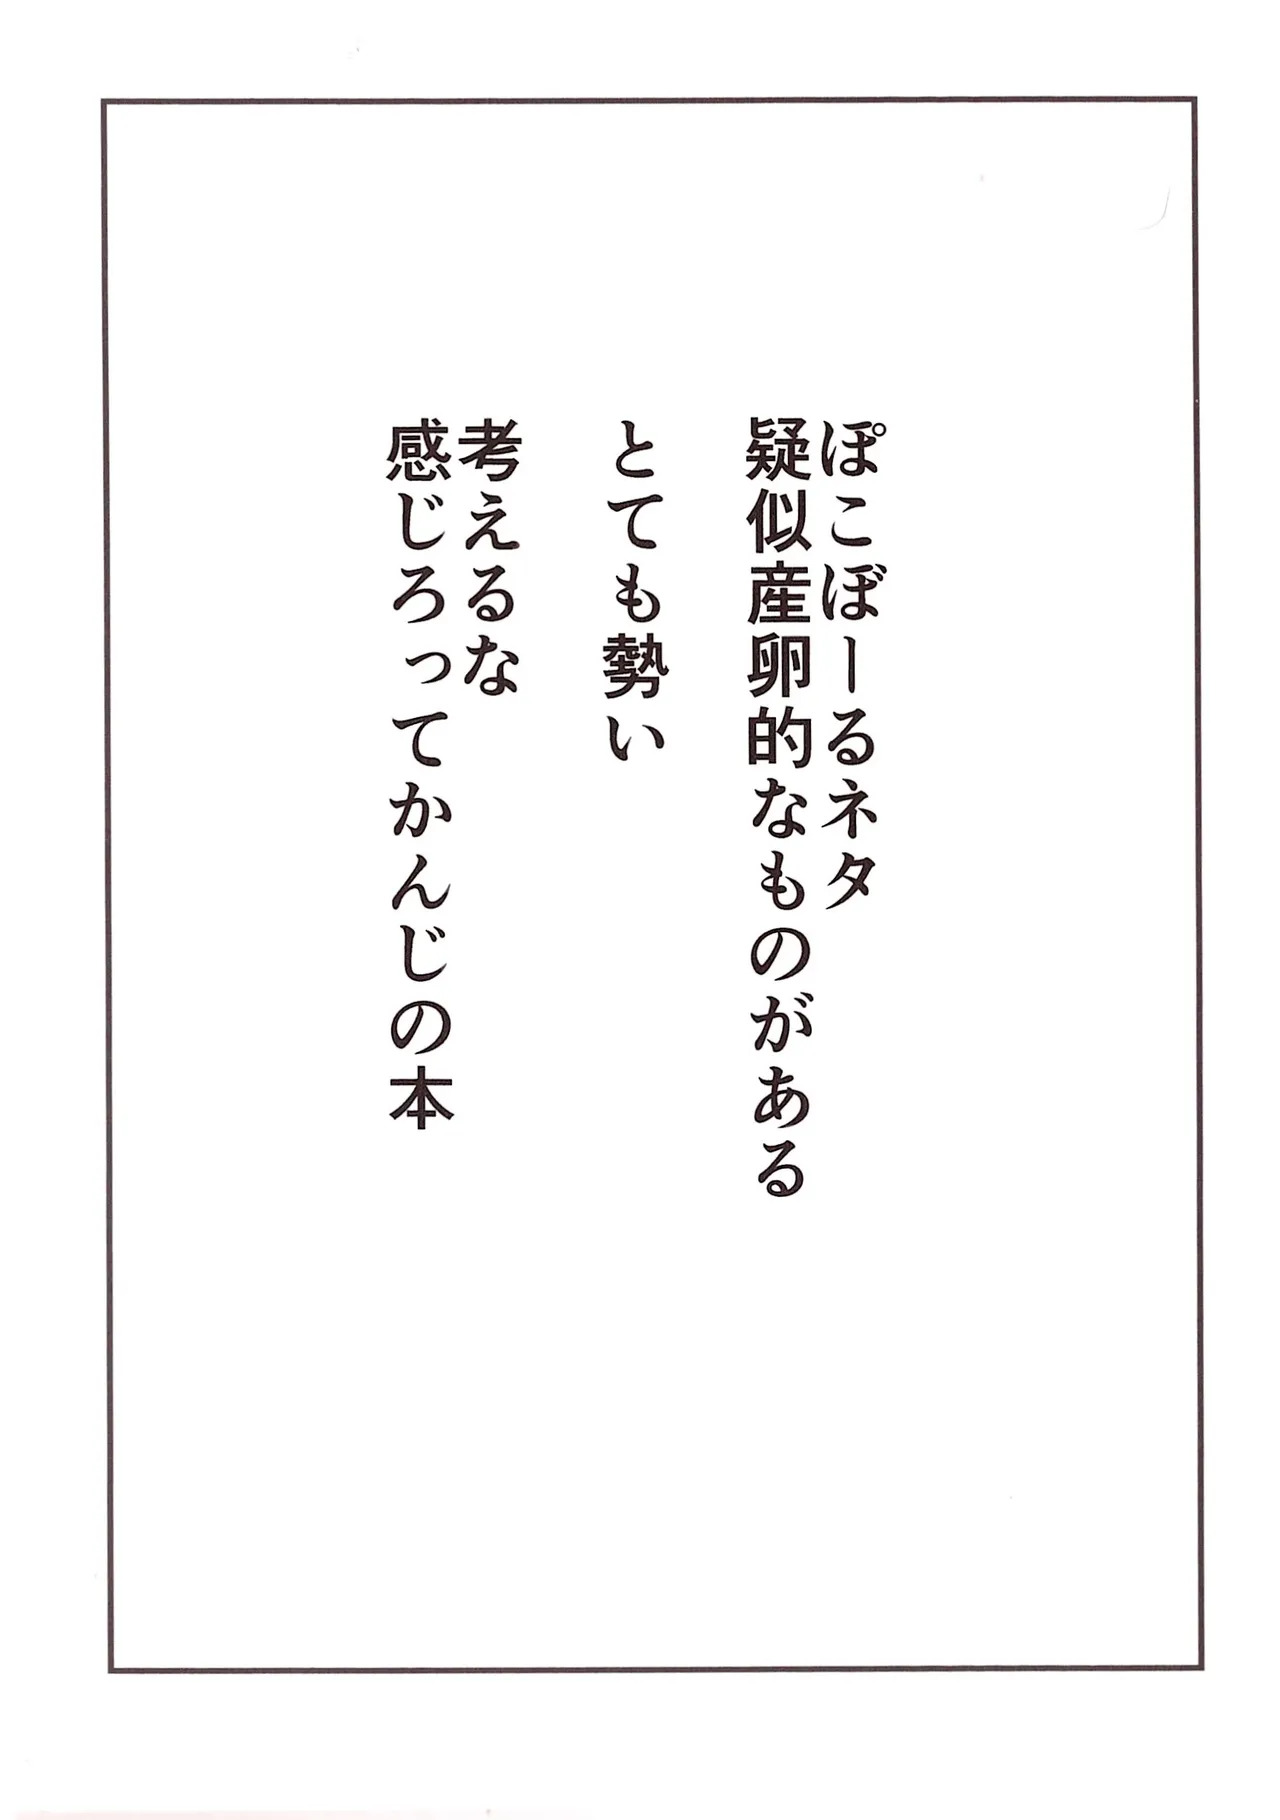 ぽこぼーるネタ
疑似産卵的なものがある
とても勢い
考えるな
感じろってかんじの本